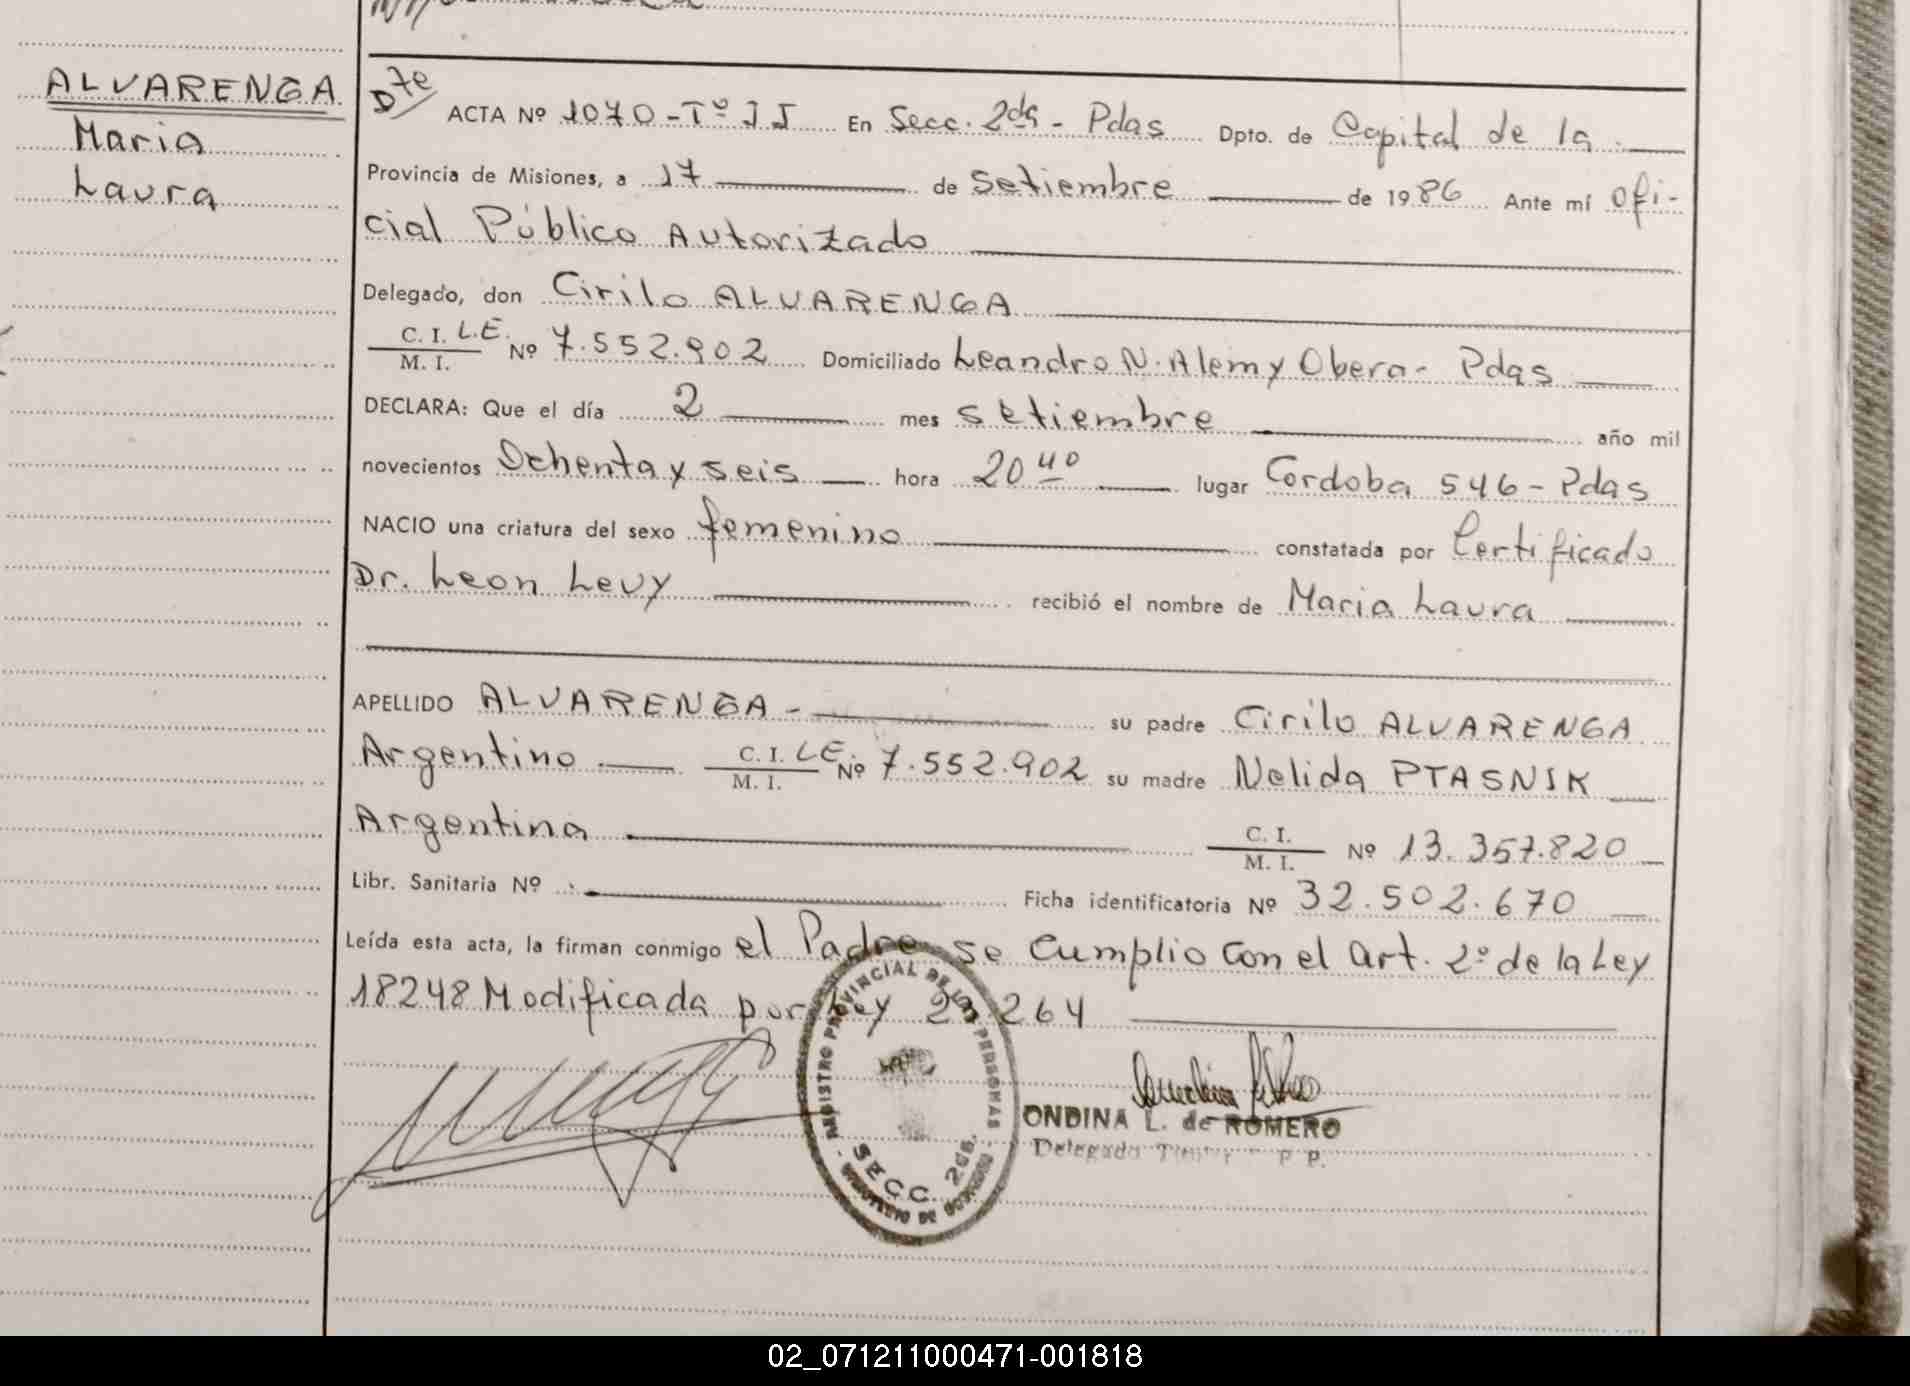 ALVARENGA
Maria
Laura
Dte
ACTA Nº 1070 - Tº II En Secc. 2da - Pdas Dpto. de Capital de la
Provincia de Misiones, a 17 de Setiembre de 1986 Ante mí Ofi-
cial Público Autorizado
Delegado, don Cirilo ALVARENGA
C. I. L.E. Nº 7.552.902 Domiciliado Leandro N. Alem y Obera - Pdas
M. I.
DECLARA: Que el día 2 mes Setiembre año mil
novecientos Ochenta y seis hora 20 40 lugar Cordoba 546 - Pdas
NACIO una criatura del sexo femenino constatada por Certificado
Dr. Leon Levy recibió el nombre de Maria Laura
APELLIDO ALVARENGA - su padre Cirilo ALVARENGA
Argentino C. I. LE. Nº 7.552.902 su madre Nelida PTASNIK
M. I.
Argentina C. I. Nº 13.357.820
M. I.
Libr. Sanitaria Nº Ficha identificatoria Nº 32.502.670
Leída esta acta, la firman conmigo el Padre se Cumplio con el Art. 2º de la Ley
18248 Modificada por Ley 23264
REGISTRO PROVINCIAL DE LAS PERSONAS
SECC. 2da.
MINISTERIO DE GOBIERNO
ONDINA L. de ROMERO
Delegada Titular
02_071211000471-001818